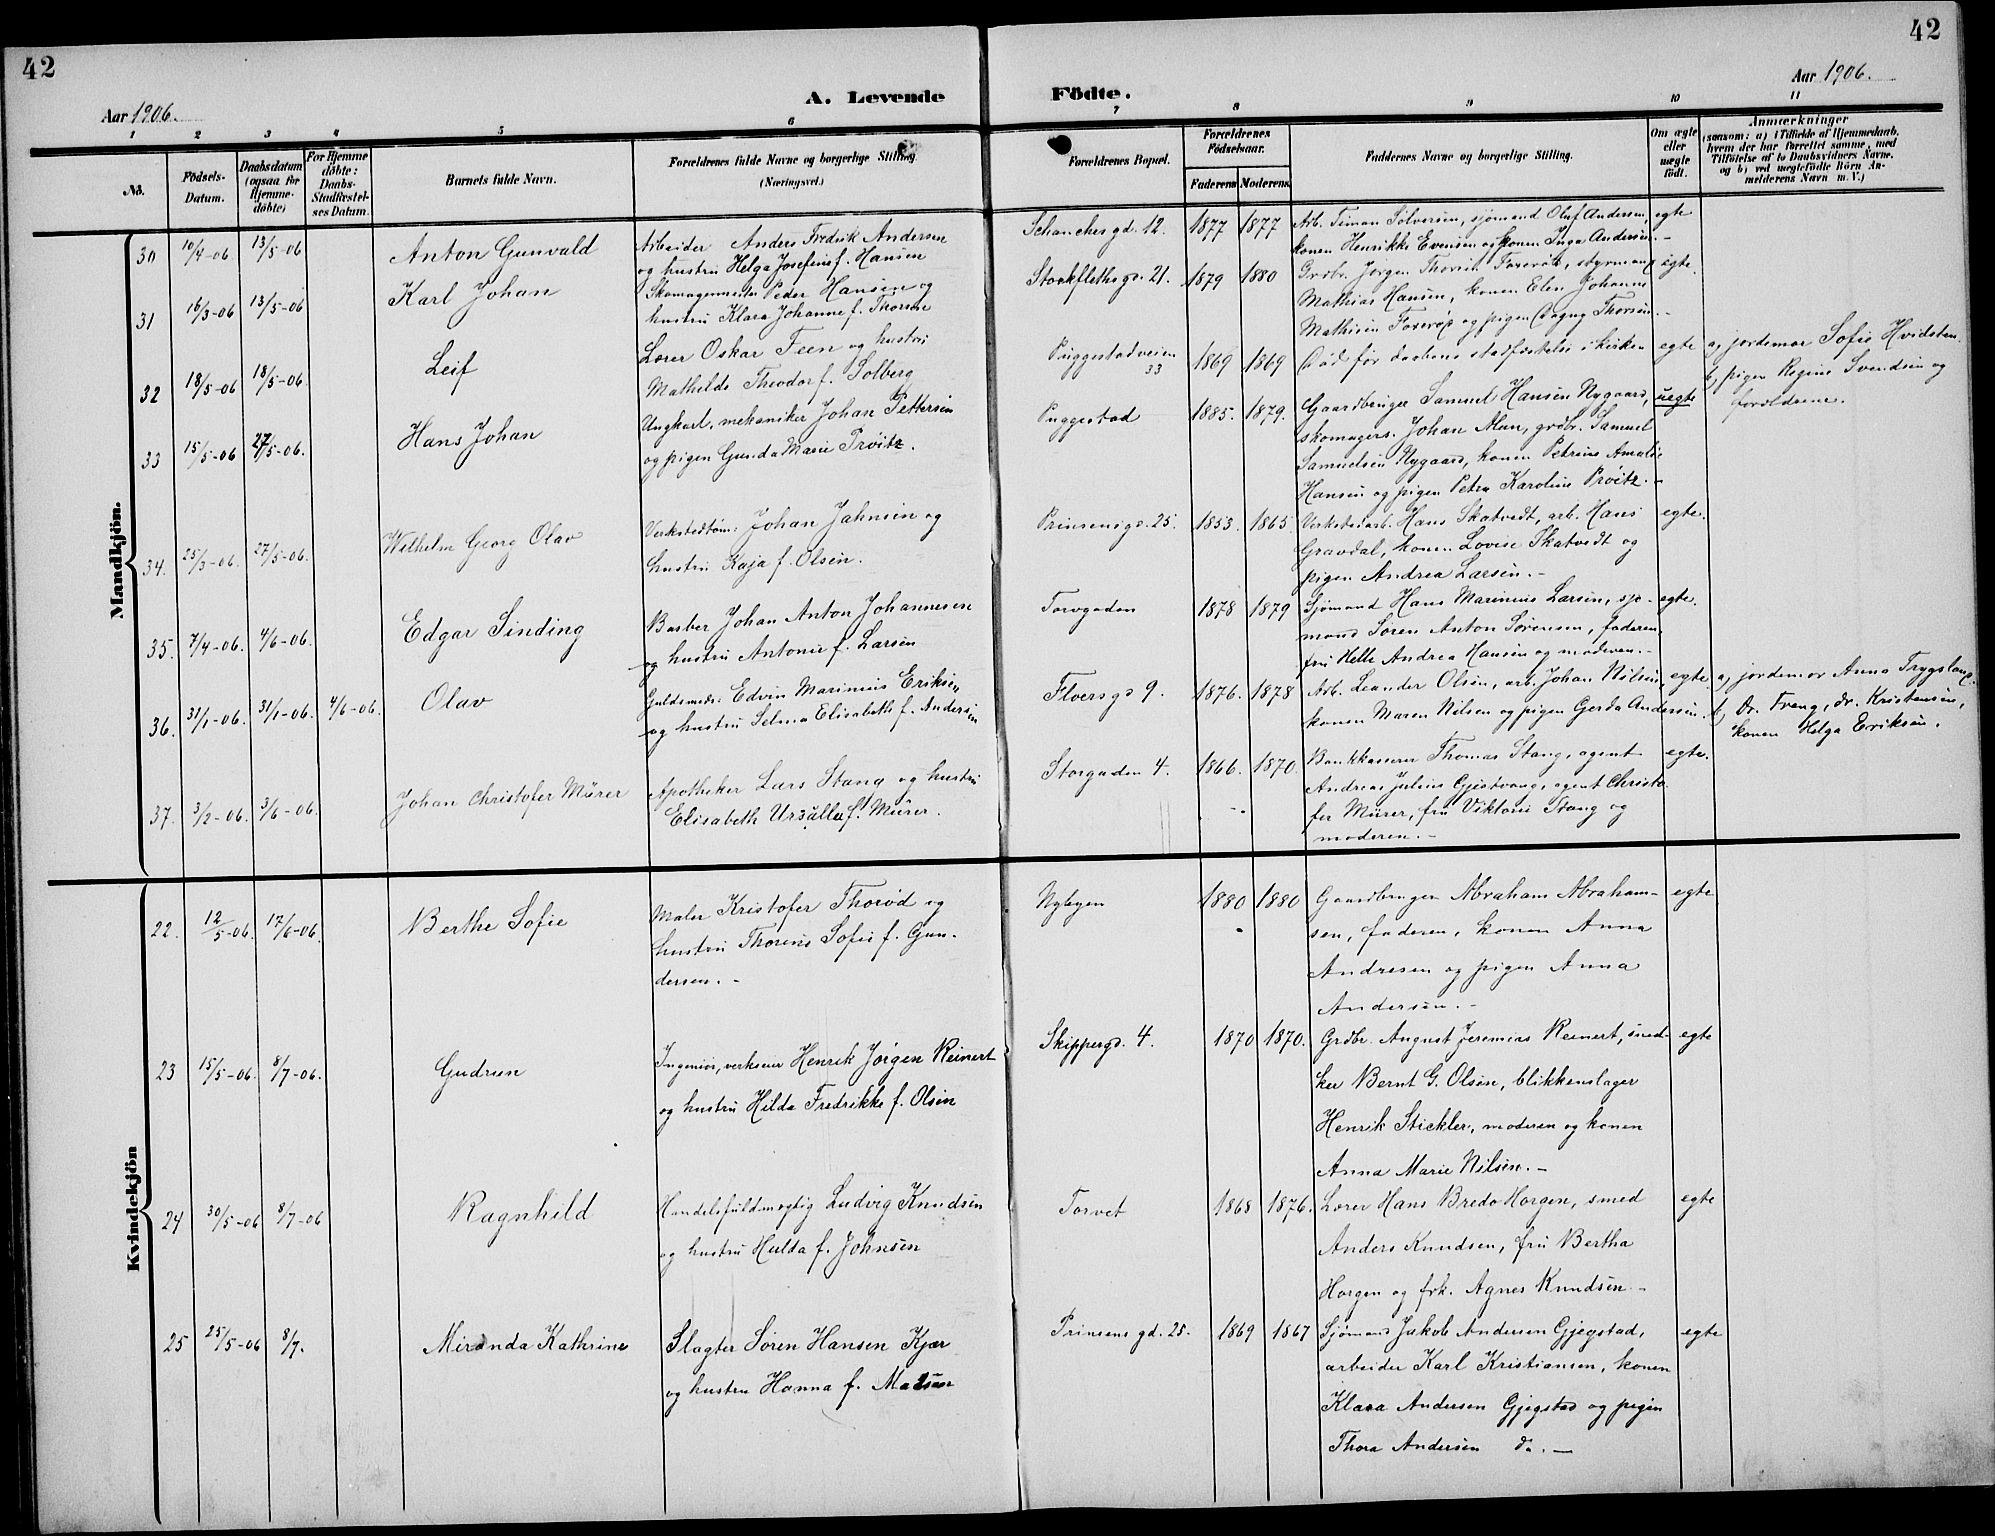 42
42
Aar 1906.
A. Levende Födte.
Aar 1906.
1 2 3 4 5 6 7 8 9 10 11
No.
Födsels-
Datum.
Daabsdatum
(ogsaa for
Hjemme-
döbte)
For Hjemme
döbte:
Daabs-
Stadfæstel-
ses Datum.
Barnets fulde Navn.
Forældrenes fulde Navne og borgerlige Stilling
(Næringsvei.)
Forældrenes Bopæl.
Forældrenes
Födselsaar.
Faderens Moderens.
Faddernes Navne og borgerlige Stilling.
Om ægte
eller
uægte
födt.
Anmærkninger
(saasom: a) i Tilfælde af Hjemmedaab,
hvem der har forrettet samme, med
Tilföielse af to Daabsvidners Navne,
og b) ved uægtefödte Börn An-
melderens Navn m. V.)
Mandkjön.
30 10/4-06 13/5-06
Anton Gunvald
Arbeider Anders Fredrik Andersen
og hustru Helga Josefine f. Hansen
Schanchesgd. 12. 1877 1877
Arb. Timan Solversen, sjömand Oluf Andersen,
konen Henrikke Evensen og konen Inga Andersen.-
egte
31 16/3-06 13/5-06
Karl Johan
Skomagermester Peder Hansen og
hustru Klara Johanne f. Thorsen
Stockflethsgd. 21. 1879 1880
Grdbr. Jørgen Thorsen, styrmand
Mathias Hansen, konen Elen Johanne
Mathisen og pigen Dagny Thorsen.-
egte.
32 18/5-06 18/5-06
Leif
Lærer Oskar Feen og hustru
Mathilde Theodor f. Solberg
Puggestadveien
33
1869 1869
Död før daabens stadfæstelse i kirken
egte
a, jordemor Sofie Hvidsten.
b, pigen Regine Svendsen og
forældrene.
33 15/5-06 27/5-06.
Hans Johan
Ungkarl, mekaniker Johan Pettersen
og pigen Gunda Marie Prøitz.
Puggestad 1885. 1879.
Gaardbruger Samuel Hansen Nygaard,
skomagers. Johan Men, grdbr. Samuel
Samuelsen Nygaard, konen Petrine Amalie
Hansen og pigen Petra Karoline Prøitz.-
uegte
34. 25/3-06. 27/5-06.
Wilhelm Georg Olav
Verkstedtøm: Johan Jahnsen og
hustru Kaja f. Olsen.
Prinsensgd. 25. 1853. 1865.
Verkstedarb. Hans Skatvedt, arb. Hans
Gravdal, konen Lovise Skatvedt og
pigen Andrea Larsen.-
egte.
35. 7/4-06. 4/6-06.
Edgar Sinding
Barber Johan Anton Johannesen
og hustru Antonie f. Larsen
Torvgaden 1878 1879
Sjømand Hans Marinius Larsen, sjø-
mand Søren Anton Sørensen, faderen,
fru Helle Andrea Hansen og moderen.-
egte.
36. 31/1-06. 31/1-06. 4/6-06.
Olav
Guldsmeds: Edvin Marinius Eriksen
og hustru Selma Elisabeth f. Andersen
Floersgd 9. 1876. 1878
Arb. Leander Olsen, arb. Johan Nilsen,
konen Maren Nilsen og pigen Gerda Andersen.
egte.
a, jordemor Anna Trygslanp.
b, Dr. Freng, dr. Kristensen,
konen Helga Eriksen.
37. 3/2-06. 3/6-06.
Johan Christofer Mürer
Apotheker Lars Stang og hustru
Elisabeth Ursulla f. Mürer.
Storgaden 4. 1866. 1870.
Bankkasserer Thomas Stang, agent
Andreas Julius Gjestvang, agent Christo
fer Mürer, fru Viktoria Stang og
moderen.-
egte.
Kvindekjön
22. 12/5-06. 17/6-06.
Berthe Sofie
Maler Kristofer Thorød og
hustru Thorene Sofie f. Gun-
dersen.-
Nybyen 1880 1880
Gaardbruger Abraham Abraham-
sen, faderen, konen Anna
Andresen og pigen Anna
Andersen.-
egte
23 15/5-06. 8/7-06.
Gudrun
Ingeniør, verkseier Henrik Jørgen Reinert
og hustru Hilda Fredrikke f. Olsen
Skippergd. 4. 1870 1870.
Grdbr. August Jeremias Reinert, sned-
ker Bernt G. Olsen, blikkenslager
Henrik Stickler, moderen og konen
Anna Marie Nilsen.-
egte
24 30/5-06 8/7-06
Ragnhild
Handelsfuldmegtig Ludvig Knudsen
og hustru Hulda f. Johnsen
Torvet 1868 1876.
Lærer Hans Bredo Horgen, smed
Anders Knudsen, fru Bertha
Horgen og frk. Agnes Knudsen.-
egte
25 25/5-06 8/7.
Miranda Kathrine
Slagter Søren Hansen Kjær
og hustru Hanna f. Madsen
Prinsens gd. 25. 1869 1867
Sjømand Jakob Andersen Gjegstad,
arbeider Karl Kristiansen, konen
Klara Andersen Gjegstad og pigen
Thora Andersen do.-
egte